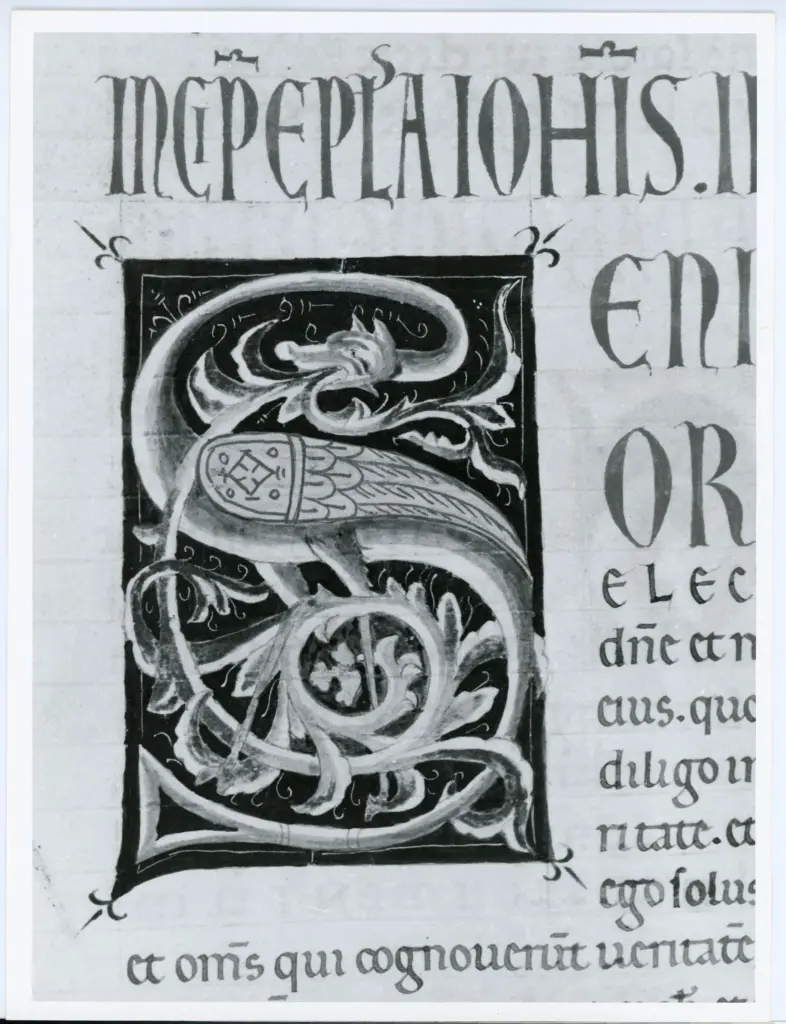 INCIP̄ EPL̄A IOHĪS. II
SENI
OR
ELEC
dn̄e et n
eius. quo
diligo in
ritate. et
ego ſolus
et om̄s qui cognouerūt ueritatē